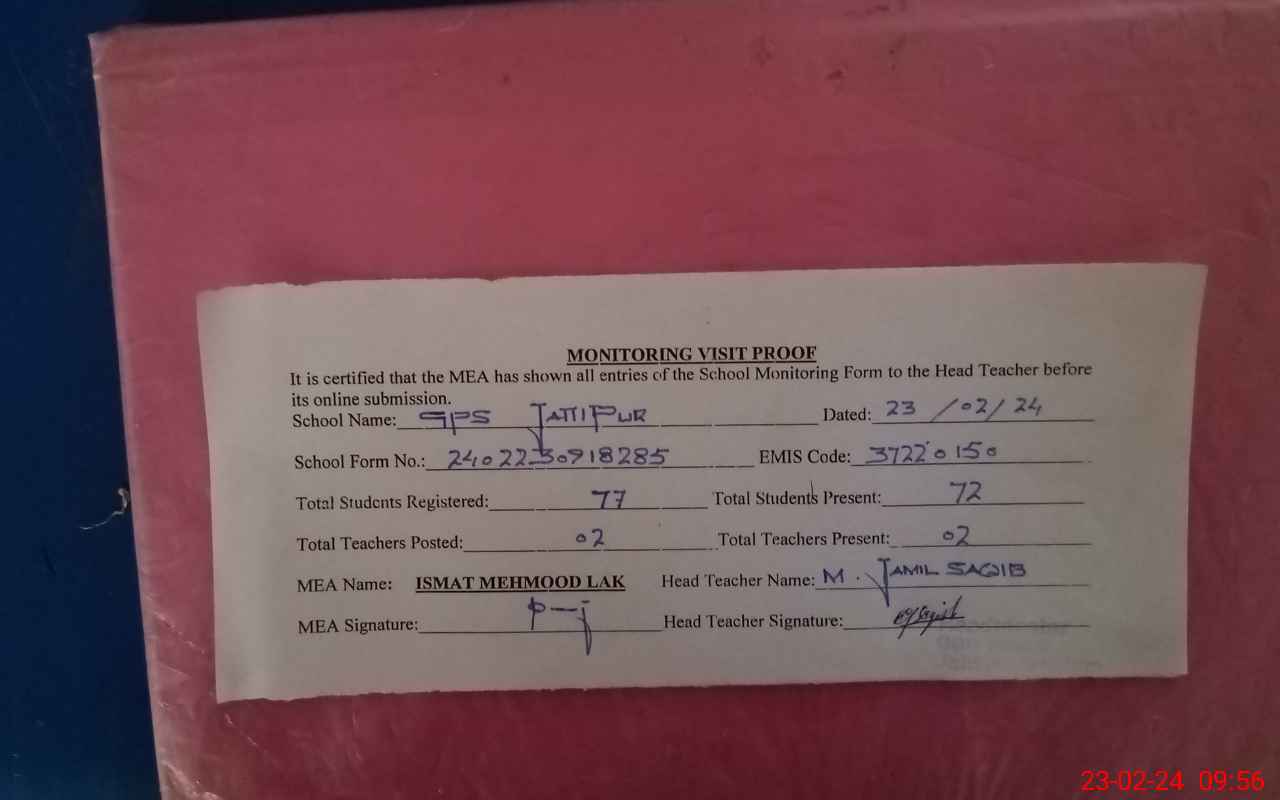 MONITORING VISIT PROOF
It is certified that the MEA has shown all entries of the School Monitoring Form to the Head Teacher before
its online submission.
School Name: GPS JATTIPUR Dated: 23/02/24
School Form No.: 24022230918285 EMIS Code: 37220150
Total Students Registered: 77 Total Students Present: 72
Total Teachers Posted: 02 Total Teachers Present: 02
MEA Name: ISMAT MEHMOOD LAK Head Teacher Name: M. JAMIL SAQIB
MEA Signature: Head Teacher Signature:
23-02-24 09:56